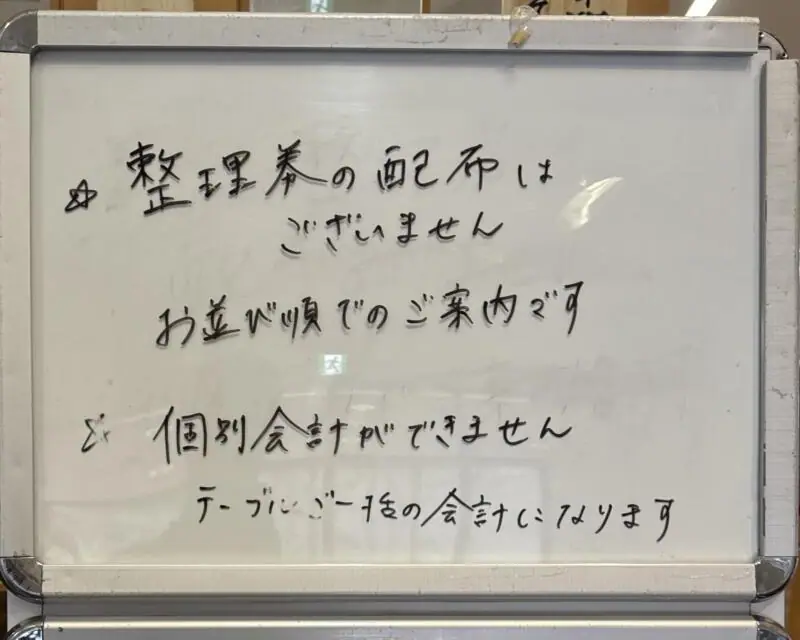 ☆ 整理券の配布は
ございません
お並び順でのご案内です
☆ 個別会計ができません
テーブルご一括の会計になります